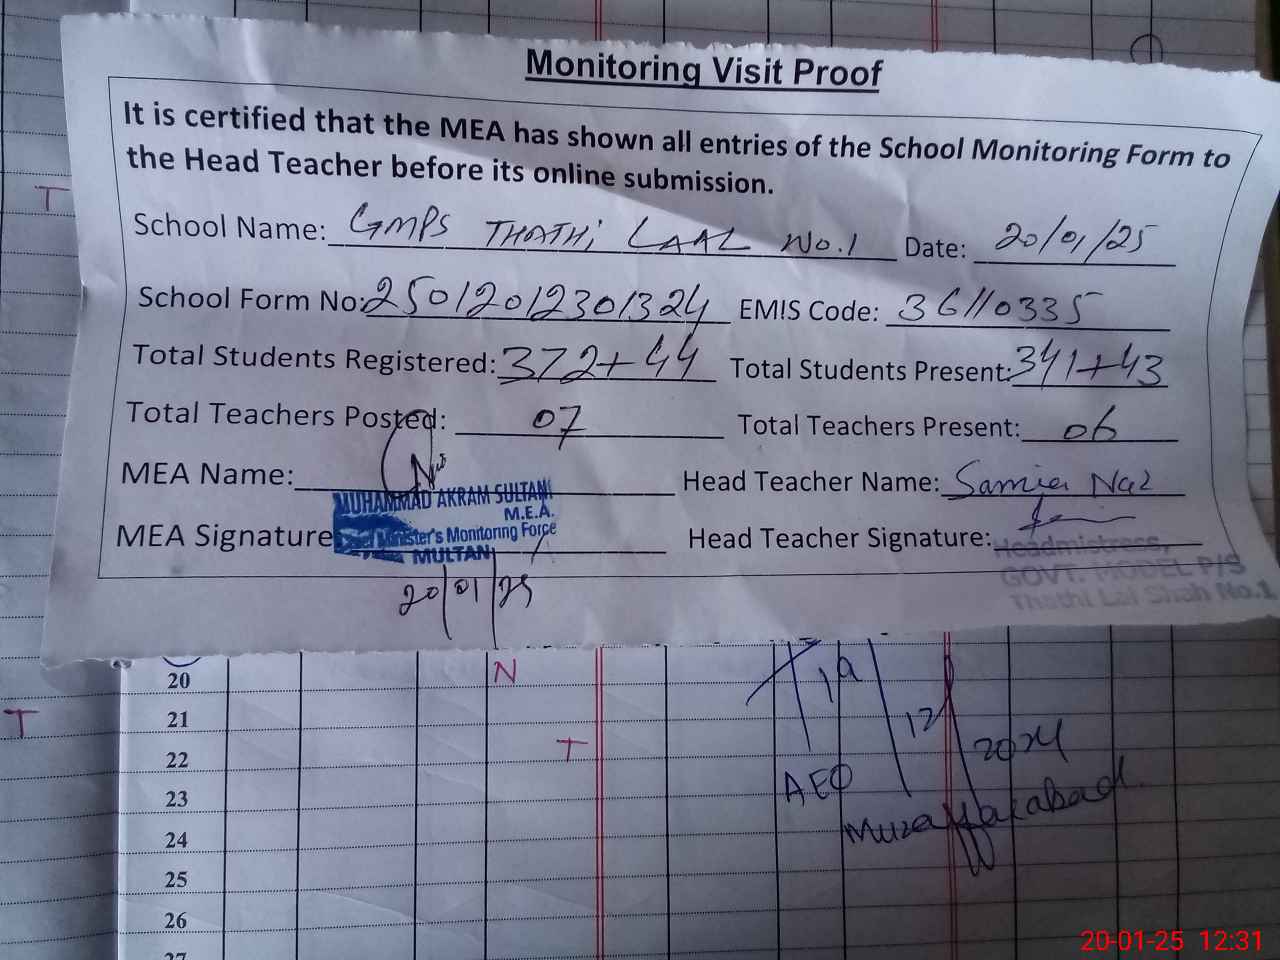 Monitoring Visit Proof
It is certified that the MEA has shown all entries of the School Monitoring Form to
the Head Teacher before its online submission.
School Name: GMPS THATHi LAAL No.1 Date: 20/01/25
School Form No: 25012012301324 EMIS Code: 36110335
Total Students Registered: 372+44 Total Students Present: 341+43
Total Teachers Posted: 07 Total Teachers Present: 06
MEA Name: Head Teacher Name: Samia Naz
MUHAMMAD AKRAM SULTANI
M.E.A.
Minister's Monitoring Force
MULTAN
MEA Signature Head Teacher Signature:
Headmistress,
GOVT. MODEL P/S
Thathi Lal Shah No.1
20/01/25
T
N
T
T
20
21
22
23
24
25
26
27
19/12/2024
AEO
Muzaffarabad
20-01-25 12:31